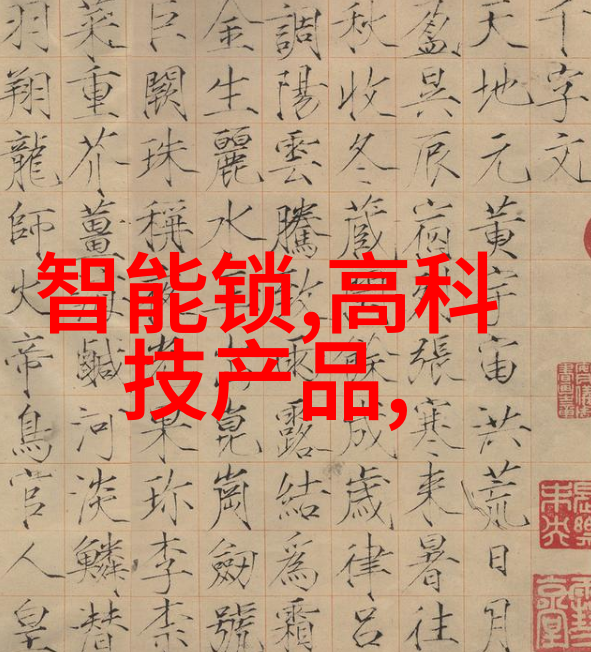 智能锁,高科
技产品,
千字文
天地元黃宇宙洪荒日月
盈昃辰宿列張寒来暑往
秋收冬蔵閏餘成歲律呂
調陽雲騰致雨露結為霜
金生麗水玉出崑崗劒號
巨闕珠稱夜光果珍李柰
菜重芥薑海鹹河淡鱗潜
羽翔龍師火帝鳥官人皇